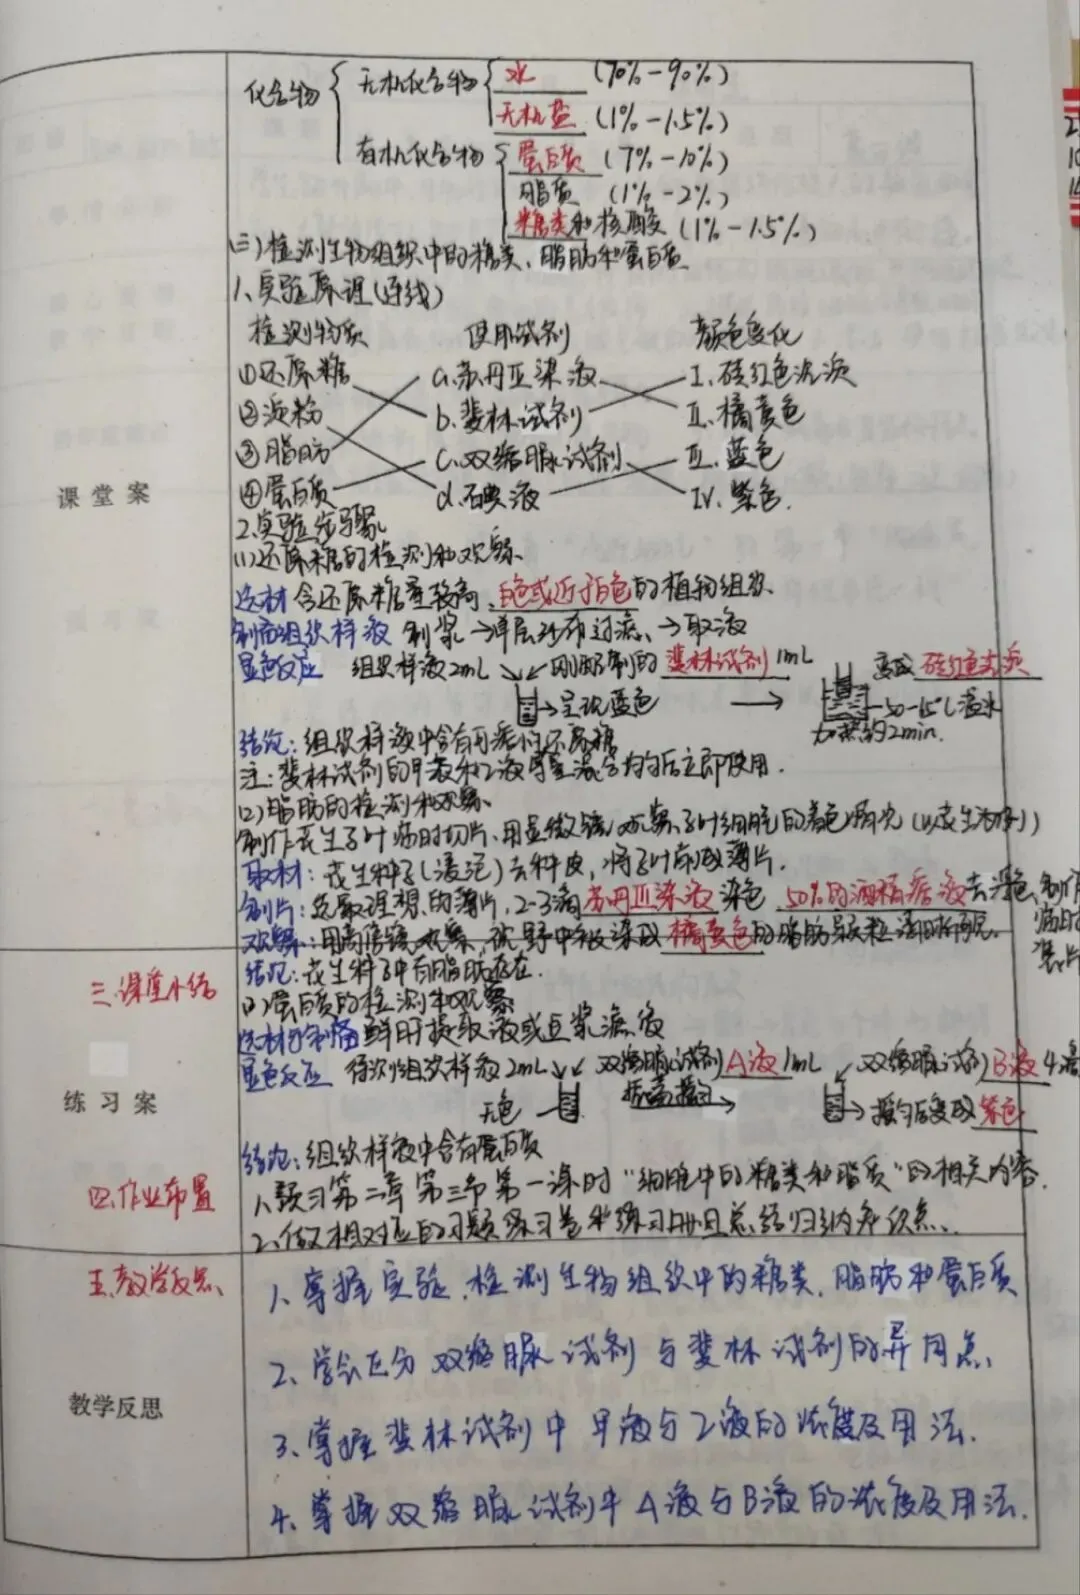 化合物 无机化合物 水 (70%-90%)
无机盐 (1%-1.5%)
有机化合物 蛋白质 (7%-10%)
脂质 (1%-2%)
糖类和核酸 (1%-1.5%)
(三)检测生物组织中的糖类、脂肪和蛋白质
1、实验原理(连线)
检测物质 使用试剂 颜色变化
①还原糖 a.苏丹Ⅲ染液 Ⅰ.砖红色沉淀
②淀粉 b.斐林试剂 Ⅱ.橘黄色
③脂肪 c.双缩脲试剂 Ⅲ.蓝色
④蛋白质 d.碘液 Ⅳ.紫色.
课堂案
2.实验步骤
(1)还原糖的检测和观察
选材 含还原糖量较高、白色或近于白色的植物组织
制备组织样液 制浆→单层纱布过滤→取液
显色反应 组织样液2mL 刚配制的斐林试剂1mL 变成砖红色沉淀
→呈现蓝色 50-65℃温水
加热约2min.
结论:组织样液中含有可溶性还原糖
注:斐林试剂的甲液和乙液等量混合均匀后立即使用.
(2)脂肪的检测和观察
制作花生子叶临时切片,用显微镜观察子叶细胞的着色情况(以花生为例)
取材:花生种子(浸泡)去种皮,将子叶削成薄片.
制片:选取理想的薄片,2-3滴苏丹Ⅲ染液染色 50%的酒精溶液去浮色,制作
临时
装片
观察:用高倍镜观察,视野中被染成橘黄色的脂肪颗粒清晰可见.
结论:花生种子中有脂肪存在.
三.课堂小结
(3)蛋白质的检测和观察
选材与制备 鲜肝提取液或豆浆滤液
显色反应 待测组织样液2mL 双缩脲试剂A液1mL 双缩脲试剂B液4滴
无色 振荡摇匀 →摇匀后变成紫色
练习案
结论:组织样液中含有蛋白质
四.作业布置
1、预习第二章第三节第一课时“细胞中的糖类和脂质”的相关内容.
2、做相对应的习题练习卷和练习册且总结归纳知识点、
五.教学反思
教学反思
1、掌握实验,检测生物组织中的糖类,脂肪和蛋白质
2、学会区分双缩脲试剂与斐林试剂的异同点、
3、掌握斐林试剂中甲液与乙液的浓度及用法.
4、掌握双缩脲试剂中A液与B液的浓度及用法.